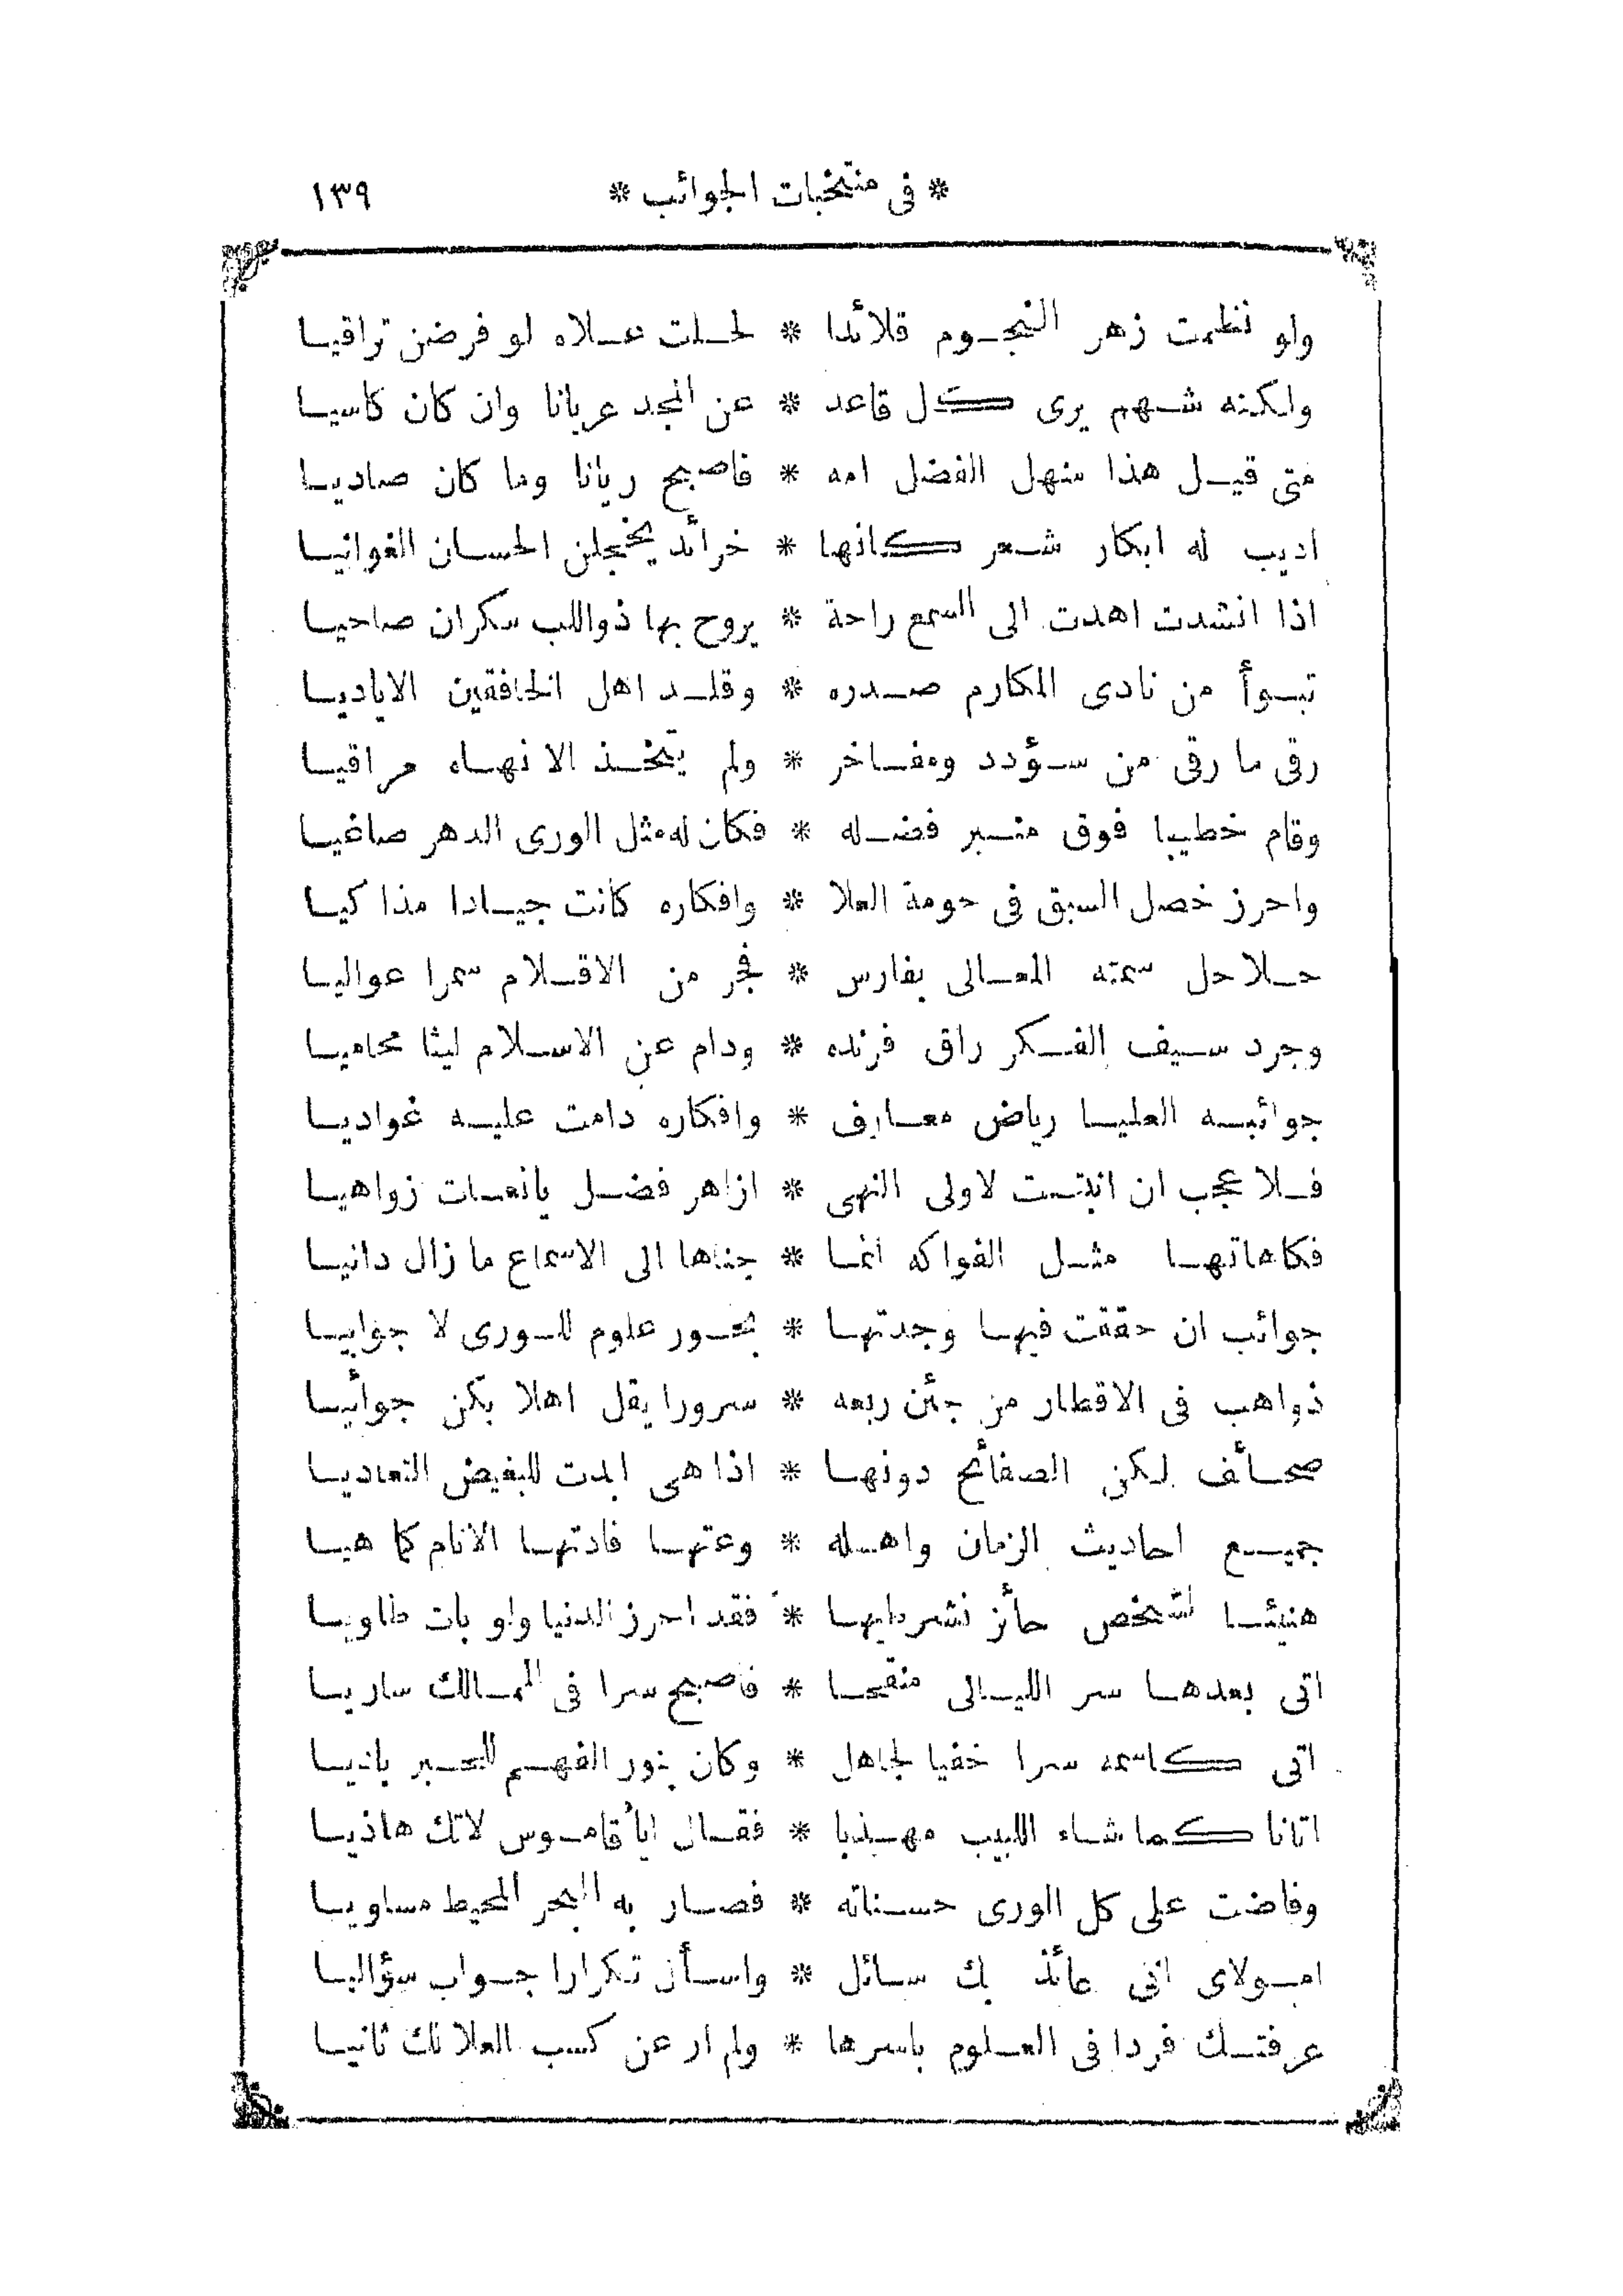 * فى منتخبات الجوائب * ١٣٩
ولو نظمت زهر النجوم قلائدا * لحلت علاه لو فرضن تراقيا
ولكنه شهم يرى كل قاعد * عن المجد عريانا وان كان كاسيا
متى قيل هذا منهل الفضل امه * فاصبح ريانا وما كان صاديا
اديب له ابكار شعر كانها * خرائد يخجلن الحسان الغوانيا
اذا انشدت اهدت الى السمع راحة * يروح بها ذواللب سكران صاحيا
تبوأ من نادى المكارم صدره * وقلد اهل الخافقين الاياديا
رقى ما رقى من سؤدد ومفاخر * ولم يتخذ الا نهاه مراقيا
وقام خطيبا فوق منبر فضله * فكان له مثل الورى الدهر صاغيا
واحرز خصل السبق فى حومة العلا * وافكاره كانت جيادا مذاكيا
حلاحل سمته المعالى بفارس * فجر من الاقلام سمرا عواليا
وجرد سيف الفكر راق فرنده * ودام عن الاسلام ليثا محاميا
جوائبه العليا رياض معارف * وافكاره دامت عليه غواديا
فلا عجب ان انبتت لاولى النهى * ازاهر فضل يانعات زواهيا
فكاهاتها مثل الفواكه انما * جناها الى الاسماع ما زال دانيا
جوائب ان حققت فيها وجدتها * بحور علوم للورى لا جوابيا
ذواهب فى الاقطار من جئن ربعه * سرورا يقل اهلا بكن جوائيا
صحائف لكن الصفائح دونها * اذا هى ابدت للبغيض التعاديا
جميع احاديث الزمان واهله * وعتها فادتها الانام كما هيا
هنيئا لشخص حائز نشر طيها * فقد احرز الدنيا ولو بات طاويا
اتى بعدها سر الليالى منقحا * فاصبح سرا فى الممالك ساريا
اتى كاسمه سرا خفيا لجاهل * وكان بنور الفهم للحبر باديا
اتانا كما شاء اللبيب مهذبا * فقال ايا قاموس لاتك هاذيا
وفاضت على كل الورى حسناته * فصار به البحر المحيط مساويا
امولاى انى عائذ بك سائل * واسأل تكرارا جواب سؤاليا
عرفتك فردا فى العلوم باسرها * ولم ار عن كسب العلا لك ثانيا